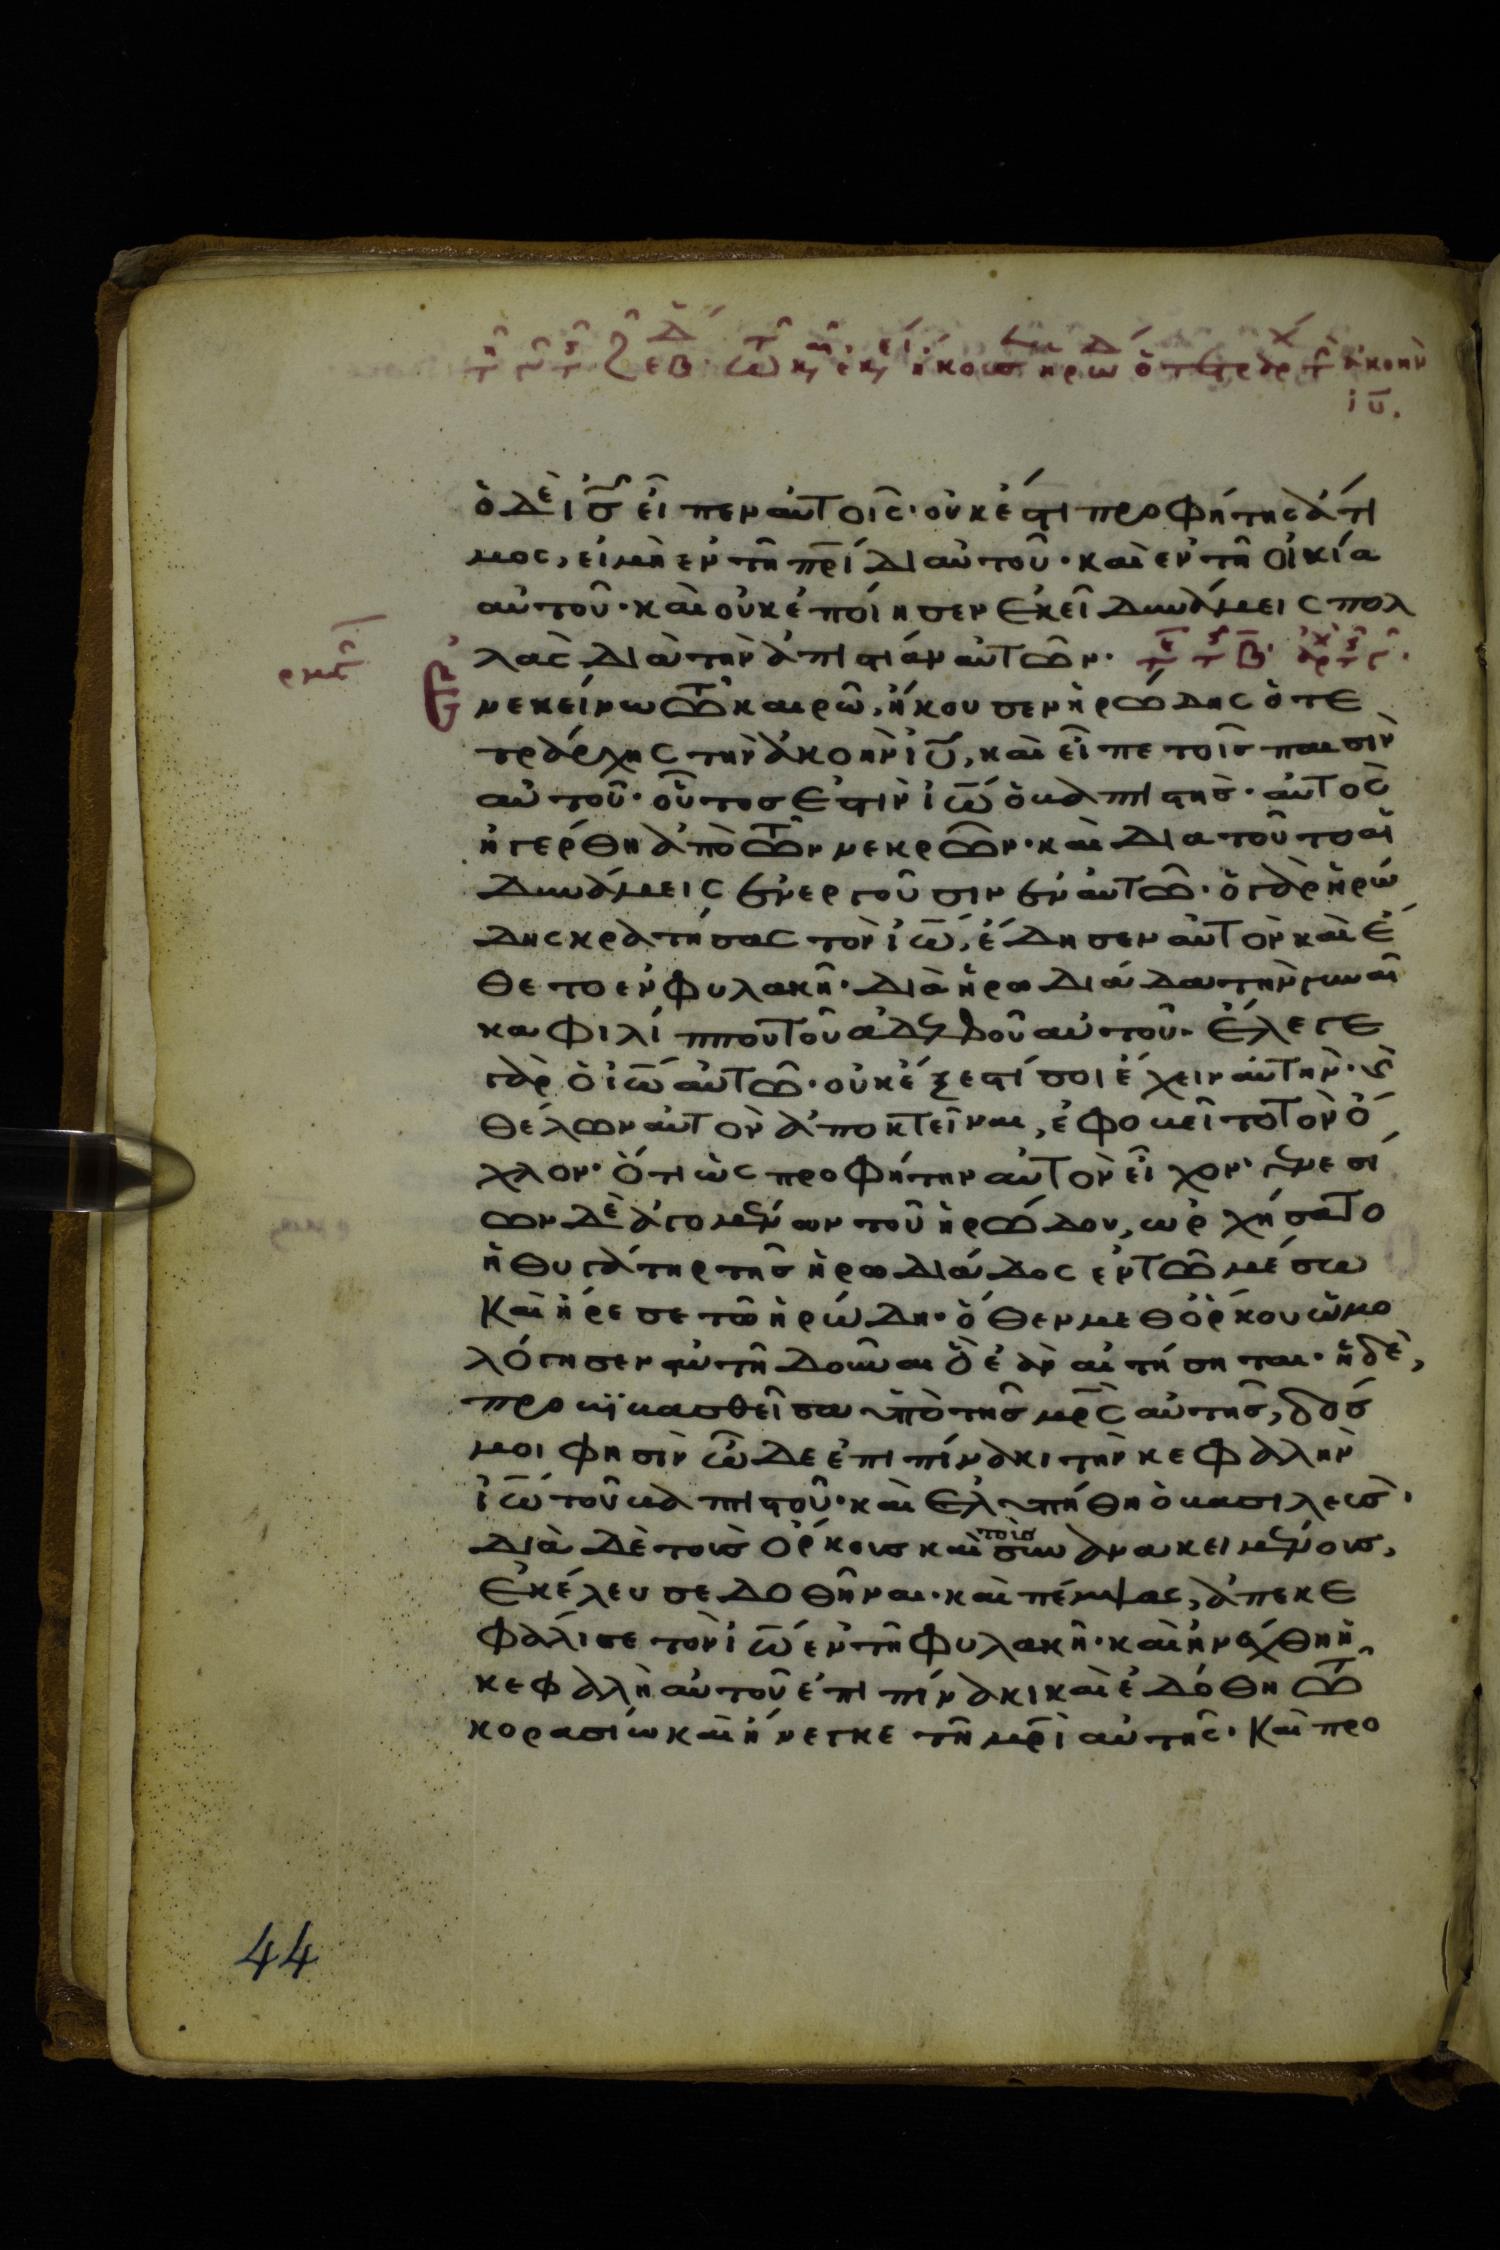 ὁ δὲ ις εἶπεν αὐτοῖς· οὐκ ἔστι προφήτης ἄτι
μος, εἰ μὴ ἐν τῆ πρίδι αὐτοῦ· καὶ ἐν τῆ οἰκία
αὐτοῦ· καὶ οὐκ ἐποίησεν ἐκεῖ δυνάμεις πολ
λὰς διὰ τὴν ἀπιστίαν αὐτῶν·
Ἐν ἐκείνω τῶ καιρῶ, ἤκουσεν ἡρώδης ὁ τε
τράρχης τὴν ἀκοὴν ιυ, καὶ εἶπε τοῖς παισὶν
αὐτοῦ· οὗτος ἐστὶν ιω ὁ βαπτιστής· αὐτὸς
ἠγέρθη ἀπὸ τῶν νεκρῶν· καὶ δια τοῦτο αἱ
δυνάμεις ἐνεργοῦσιν ἐν αὐτῶ· ὁ γὰρ ἡρώ
δης κρατήσας τὸν ιω, ἔδησεν αὐτὸν καὶ ἔ
θετο ἐν φυλακῆ· διὰ ἡρωδιάδα τὴν γυναῖ
κα φιλίππου τοῦ ἀδελφοῦ αὐτοῦ· ἔλεγε
γὰρ ὁ ιω αὐτῶ· οὐκ ἔξεστί σοι ἔχειν αὐτήν· ϗ
θέλων αὐτὸν ἀποκτεῖναι, ἐφοβεῖτο τὸν ὄ
χλον· ὅτι ὡς προφήτην αὐτὸν εἶχον· γενεσί
ων δὲ ἀγομένων τοῦ ἡρώδου, ὠρχήσατο
ἡ θυγάτηρ τῆς ἡρωδιάδος ἐν τῶ μέσω
Καὶ ἤρεσε τῶ ἡρώδη· ὅθεν μεθ ὅρκου ὡμο
λόγησεν αὐτῆ δοῦναι ὃ ἐὰν αἰτήσηται· ἡ δὲ,
προβϊβασθεῖσα ὑπὸ τῆς μρς αὐτῆς, δός
μοι φησὶν ὧδε ἐπι πίνακι τὴν κεφαλὴν
ιω τοῦ βαπτιστοῦ· καὶ ἐλυπήθη ὁ βασιλεὺς·
διὰ δὲ τοὺς ὅρκους καὶ τοὺς συνανακειμένους,
ἐκέλευσε δοθῆναι· καὶ πέμψας, ἀπεκε
φάλισε τὸν ιω ἐν τῆ φυλακῆ· καὶ ἠνέχθη ἡ
κεφαλὴ αὐτοῦ ἐπι πίνακι καὶ ἐδόθη τῶ
κορασίω καὶ ἤνεγκε τῆ μρὶ αὐτῆς· Καὶ προ
44